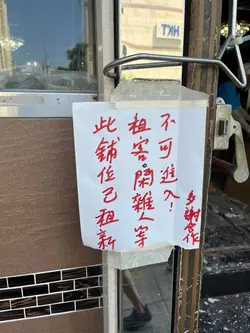 HKT
此鋪位已租新
租客。閑雜人等
不可進入!
多謝合作